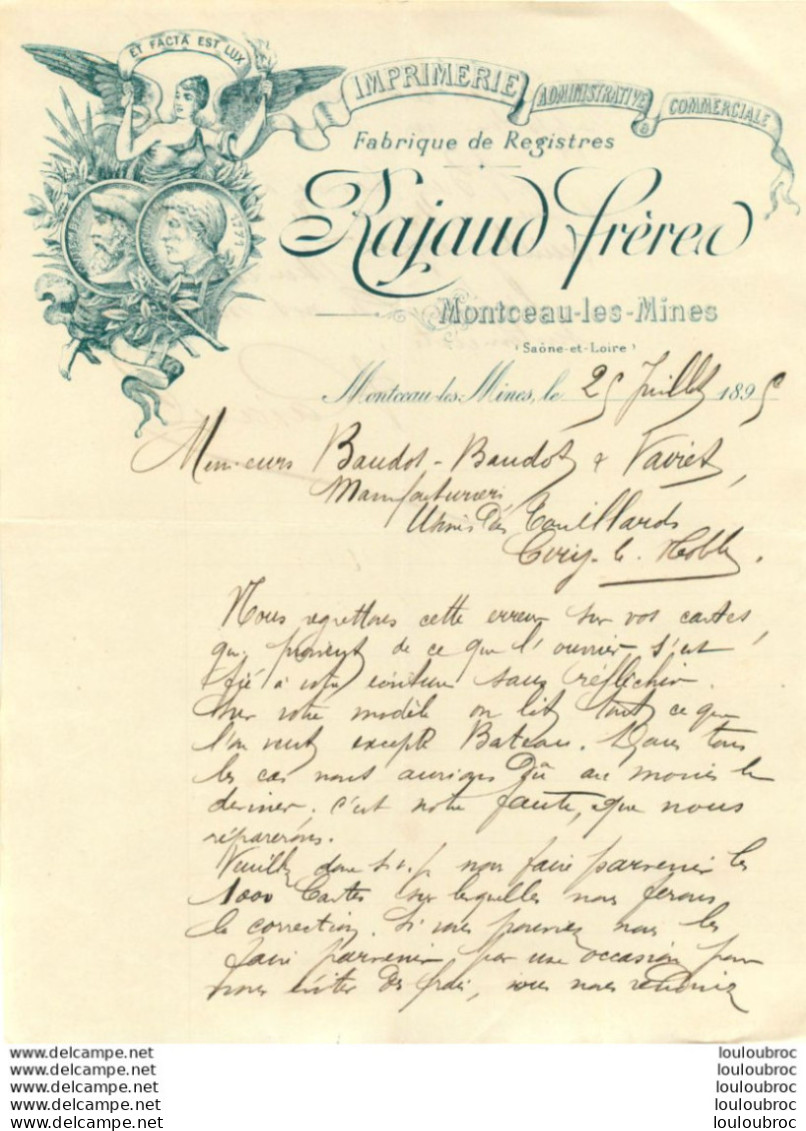 ET FACTA EST LUX
IMPRIMERIE ADMINISTRATIVE & COMMERCIALE
Fabrique de Registres
Rajaud frères
Montceau-les-Mines
(Saône-et-Loire)
Montceau-les-Mines, le 25 Juillet 1895
Messieurs Baudot-Baudot & Variet,
Manufacturiers
Usines Des Touillards
Ciry-le-Noble.
Nous regrettons cette erreur sur vos cartes,
qui provient de ce que l'ouvrier s'est
fié à votre écriture sans réfléchir.
Sur votre modèle on lit tout ce que
l'on veut excepté Bateau. Dans tous
les cas nous aurions dû au moins le
deviner, c'est notre faute, que nous
réparerons.
Veuillez donc s.v.p. nous faire parvenir les
1000 Cartes sur lesquelles nous ferons
la correction. Si vous pouviez nous les
faire parvenir par une occasion pour
nous éviter des frais, vous nous
www.delcampe.net louloubroc
www.delcampe.net louloubroc
www.delcampe.net louloubroc
www.delcampe.net louloubroc
www.delcampe.net louloubroc